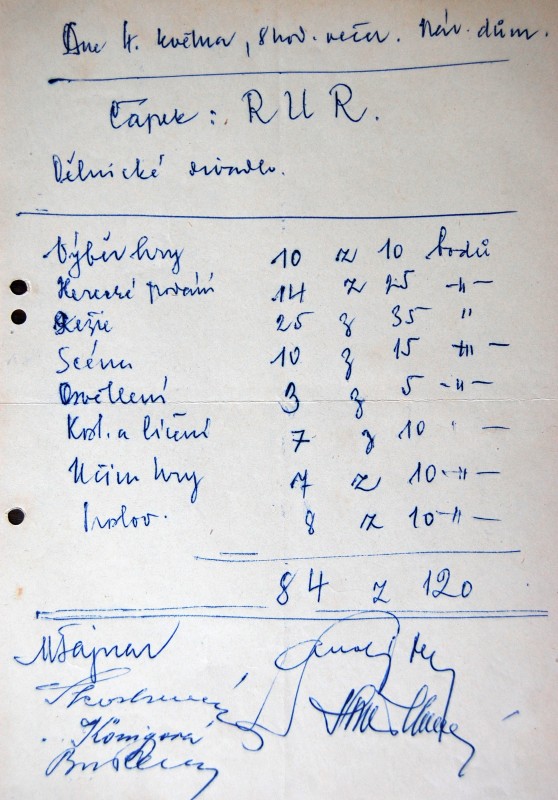 Dne 4. května, 8 hod. večer. Nár. dům.
Čapek: R U R.
Dělnické divadlo.
Výběr hry 10 z 10 bodů
Herecké podání 14 z 25 -"-
Režie 25 z 35 "
Scéna 10 z 15 -"-
Osvětlení 3 z 5 -"-
Kost. a líčení 7 z 10 " -
Účin hry 7 z 10 -"-
Proslov. 8 z 10 -"-
84 z 120
MŠajnar
Königová